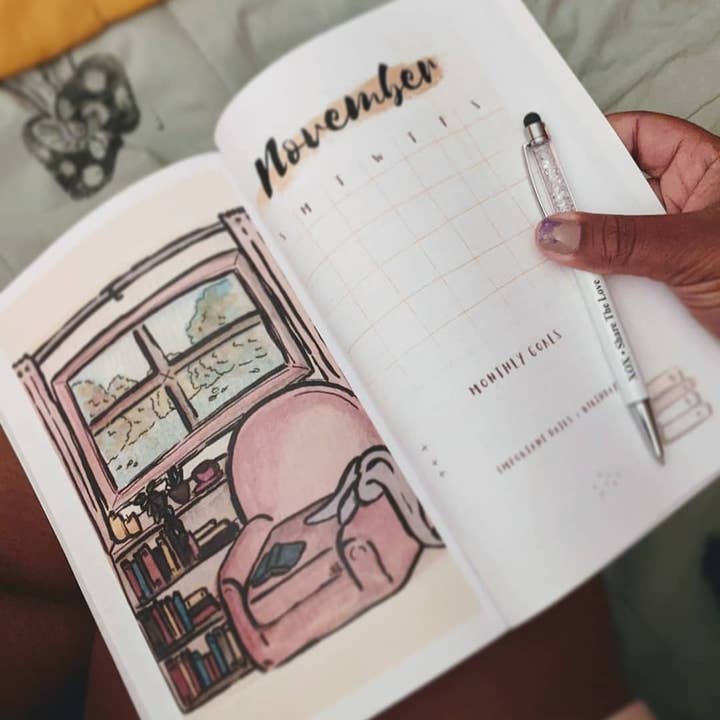 November
S M T W T F S
MONTHLY GOALS
IMPORTANT DATES +
Share The Love